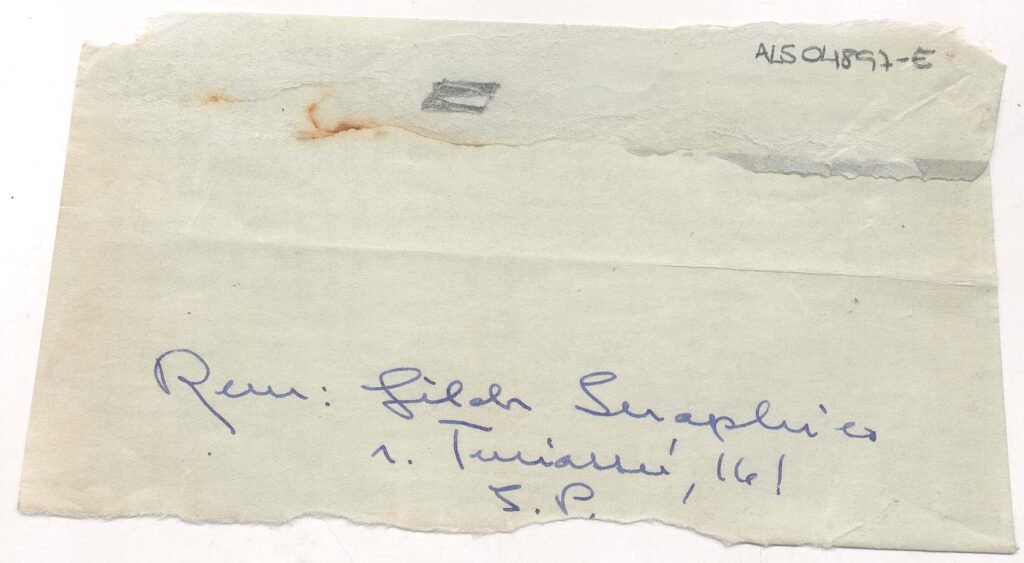 ALS04897-E
Rem: Gilda Seraphico
r. Turiassú, 161
S. P.